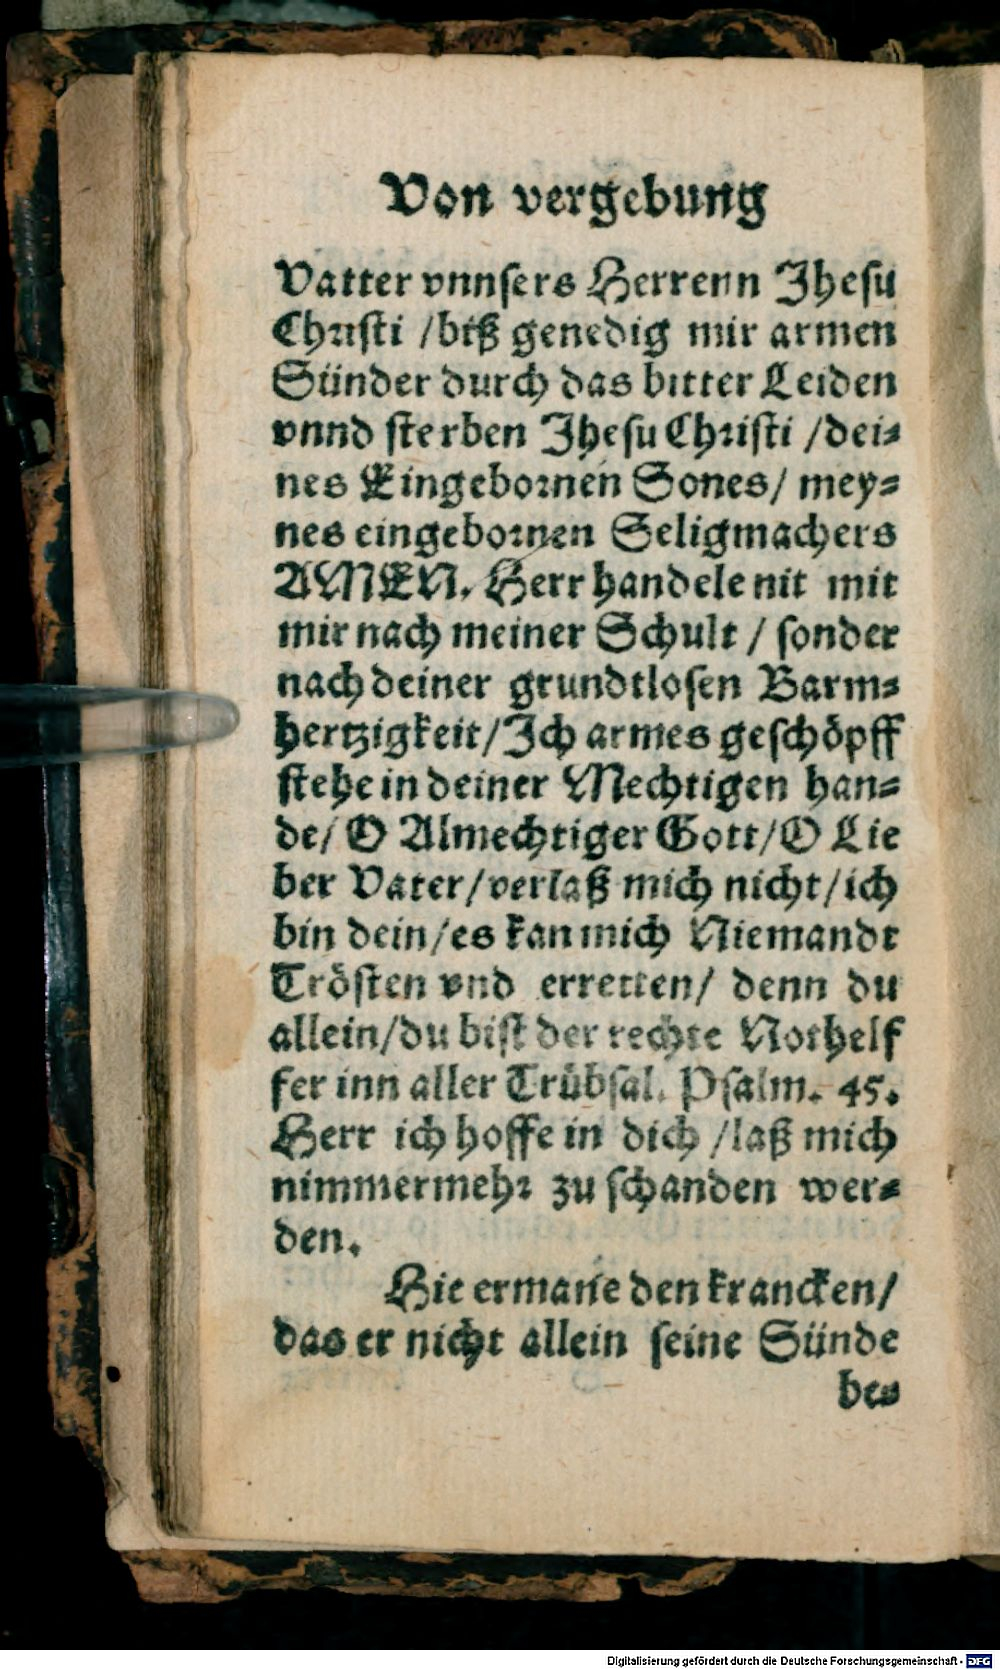 Von vergebung
Vatter vnnsers Herrenn Jhesu
Christi /biß genedig mir armen
Sünder durch das bitter Leiden
vnnd sterben Jhesu Christi /dei⸗
nes Eingebornen Sones/ mey⸗
nes eingebornen Seligmachers
AMEN. Herr handele nit mit
mir nach meiner Schult / sonder
nach deiner grundtlosen Barm⸗
hertzigkeit/Ich armes geschöpff
stehe in deiner Mechtigen han⸗
de/ O Almechtiger Gott/O Lie
ber Vater/verlaß mich nicht/ich
bin dein/es kan mich Niemandt
Trösten vnd erretten/ denn du
allein/du bist der rechte Nothelf
fer inn aller Trübsal. Psalm. 45.
Herr ich hoffe in dich /laß mich
nimmermehr zu schanden wer⸗
den.
Hie ermane den krancken/
das er nicht allein seine Sünde
be⸗
Digitalisierung gefördert durch die Deutsche Forschungsgemeinschaft - DFG